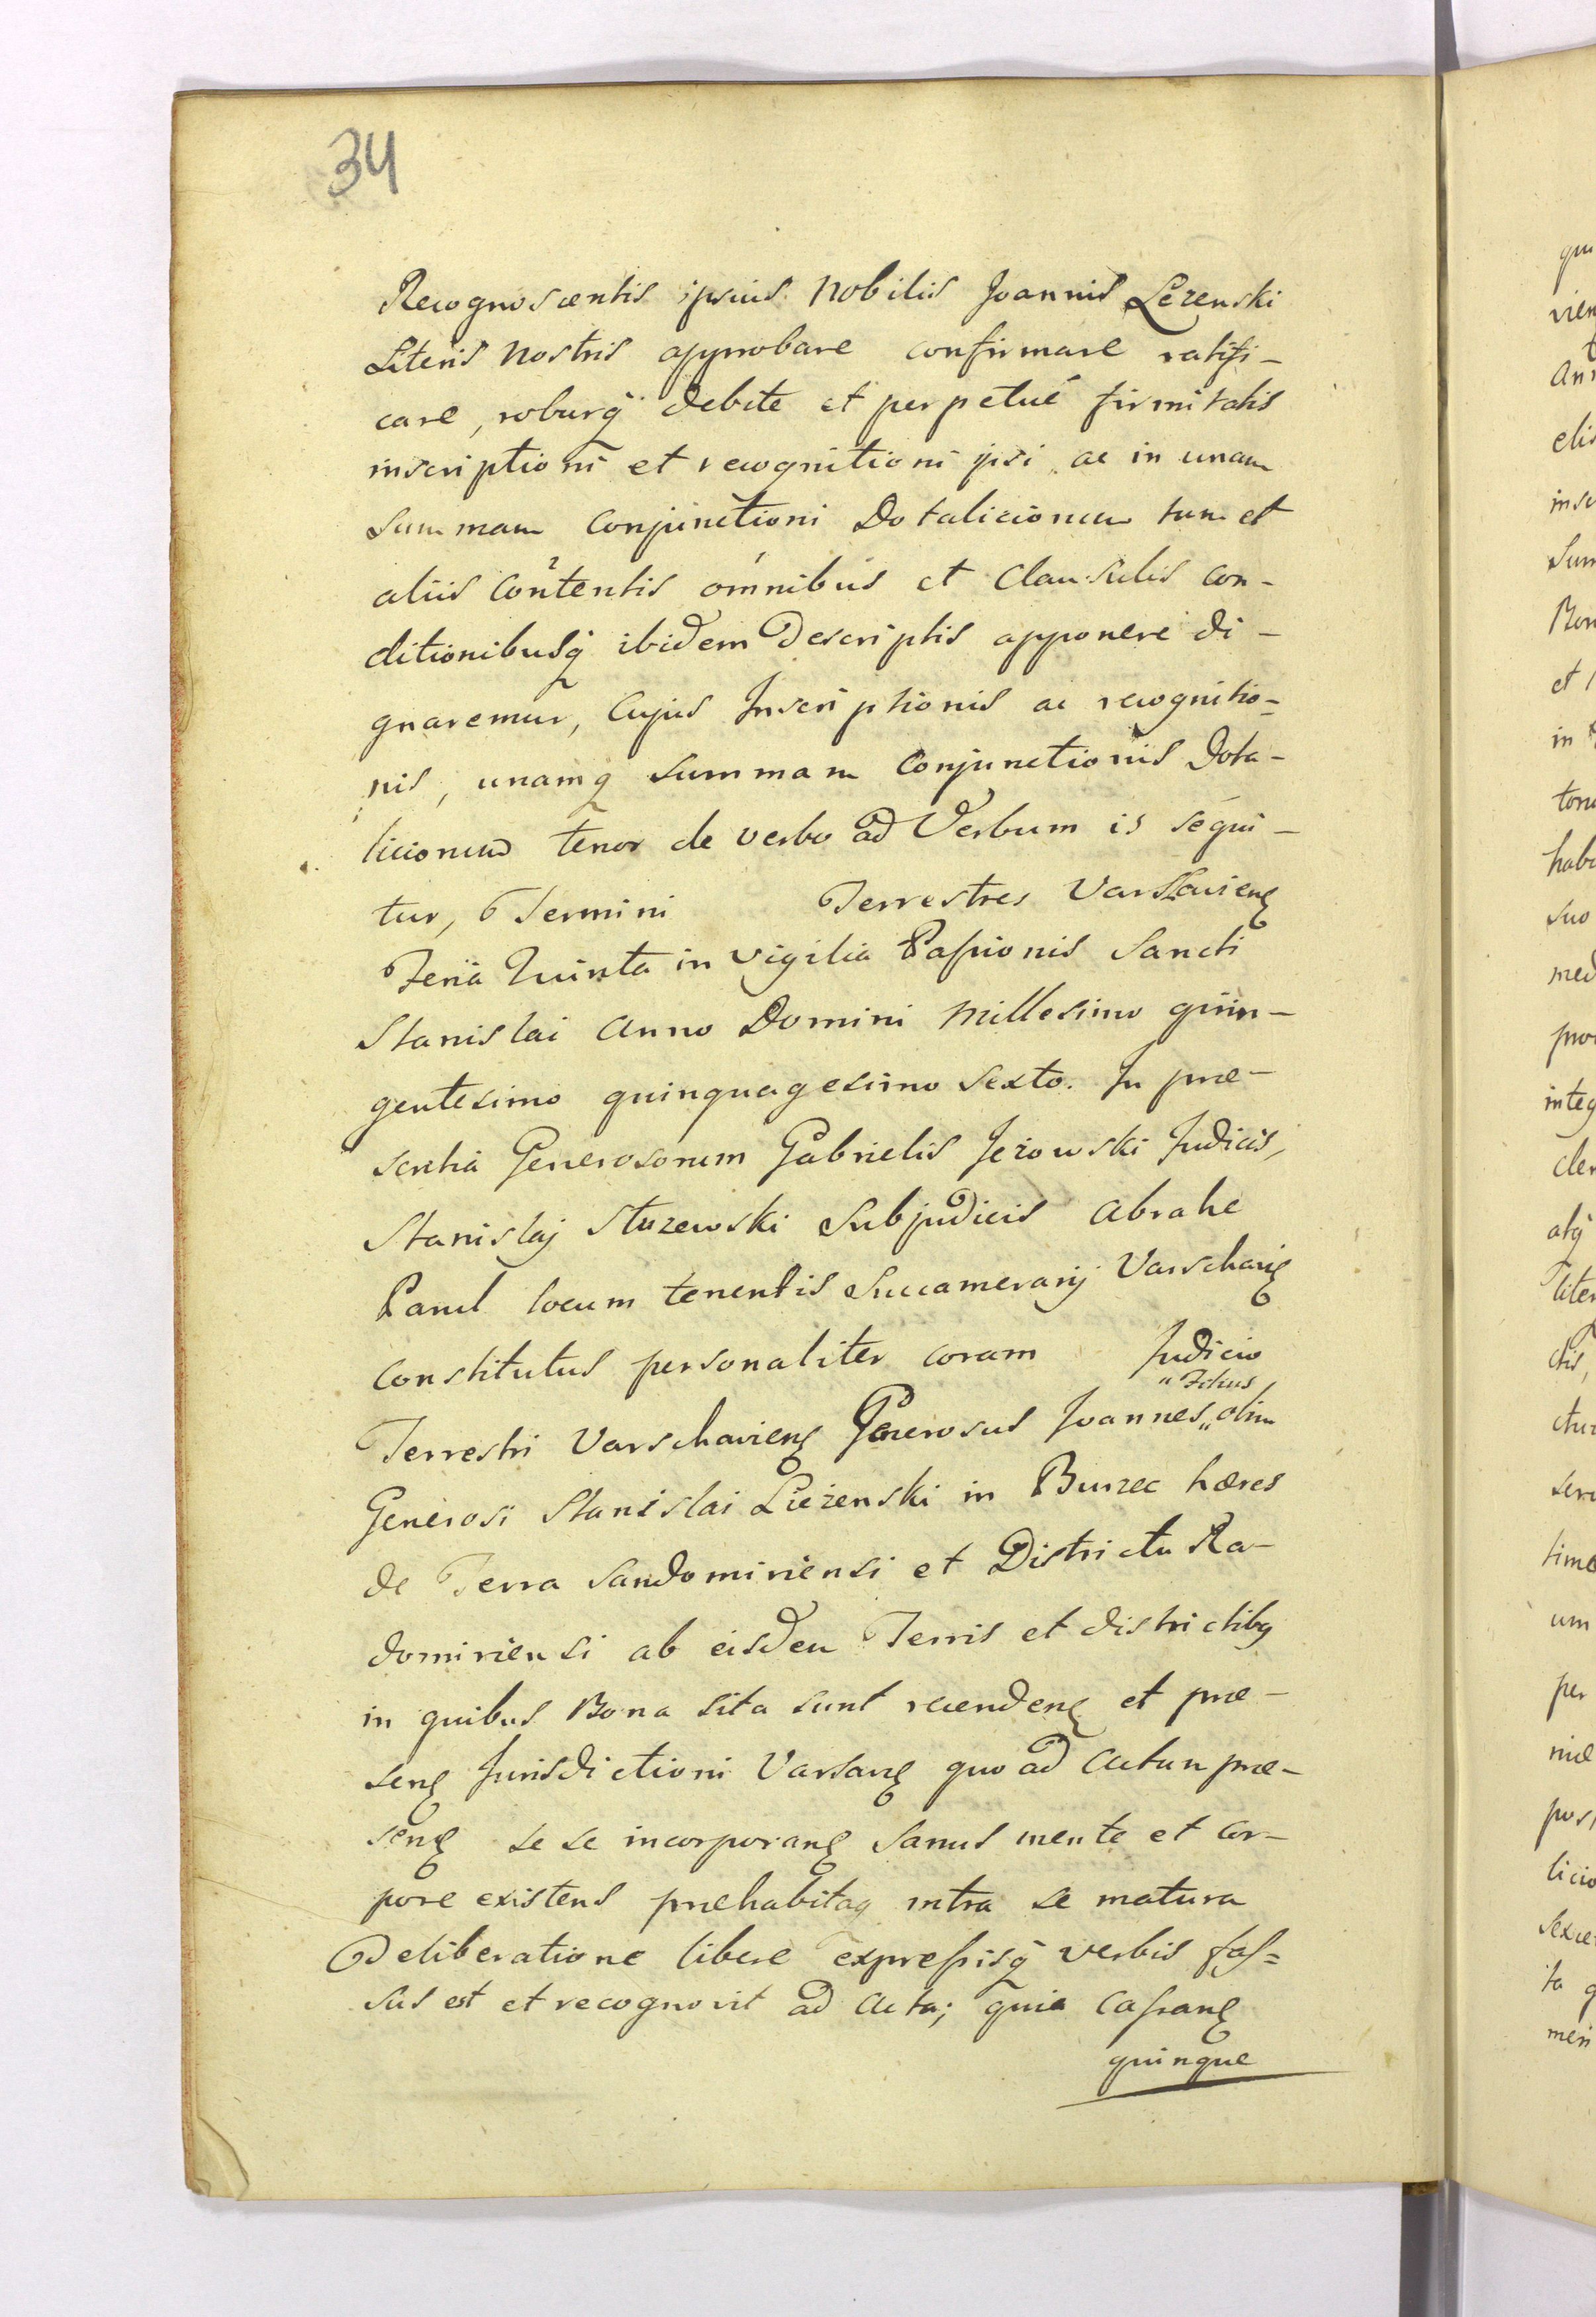 34
Recognoscentis ipsius Nobilis Joannis Lezenski
Literis Nostris approbare confirmare ratifi-
care, roburq debite et perpetue firmitatis
inscriptioni et recognitioni ipsi ac in unam
Summam Conjunctioni Dotalicionem tum et
aliis Contentis omnibus et Clausulis con-
ditionibusq ibidem Descriptis apponere di-
gnaremur, Cujus Inscriptionis ac recognitio=
nis, unamq summam Conjunctionis Dota-
licionem tenor de verbo ad Verbum is sequi-
tur, Termini Terrestres Varsavienς
Feria Quinta in vigilia Passionis Sancti
Stanislai Anno Domini Millesimo quin-
gentesimo quinquagesimo Sexto. In præ-
sentia Generosorum Gabrielis Jeżowski Judicis,
Stanislaj Służewski Subjudicis Abrahe
Parul locum tenentis Succamerarij Varschavięς
Constitutus personaliter coram Judicio
Terrestri Varschavienς Generosus Joannes „olim
„Filius
Generosi Stanislai Lieżenski in Burzec hæres
de Terra Sandomiriensi et Districtu Ra-
domiriensi ab eisdem Terris et districtibq
in quibus Bona sita sunt recendenς et præ-
senς Jurisdictioni Varsavς quo ad Actum præ-
senς se se incorporanς Sanus mente et cor-
pore existens præhabitaq intra se matura
Deliberatione libere expressisq verbis fas=
sus est et recognovit ad Acta; quia Cassanς
quinque
qui
vien
Ann
elis
insc
Sum
Bon
et
in
ton
habe
suo
med
pro
integ
cle
atq
liter
ctis,
ctu
ser
time
um
per
niæ
pos
licio
Sexce
ta q
men